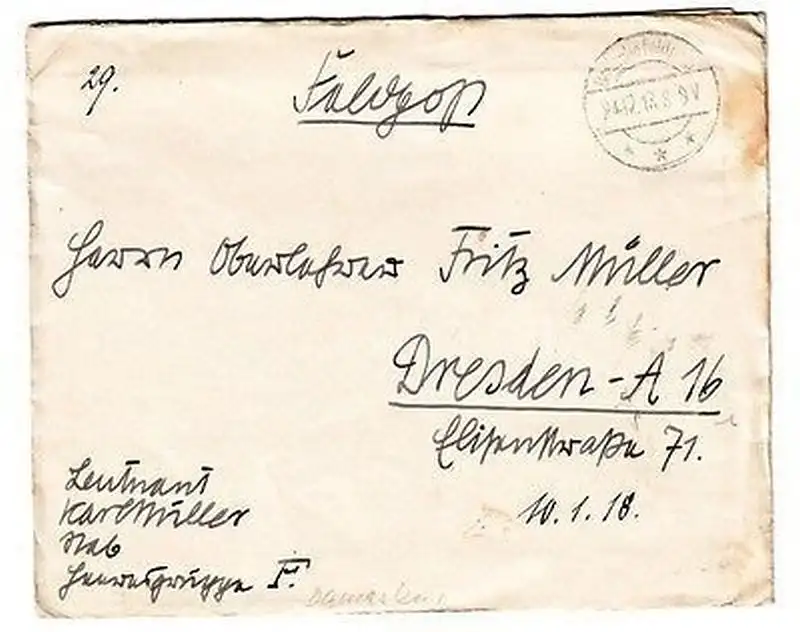 29.
Feldpost
24.12.17.8-9V
Herrn Oberlehrer Fritz Müller
Dresden-A 16
Elisenstraße 71.
10.1.18.
Leutnant
Karl Müller
Stab
Heeresgruppe F.